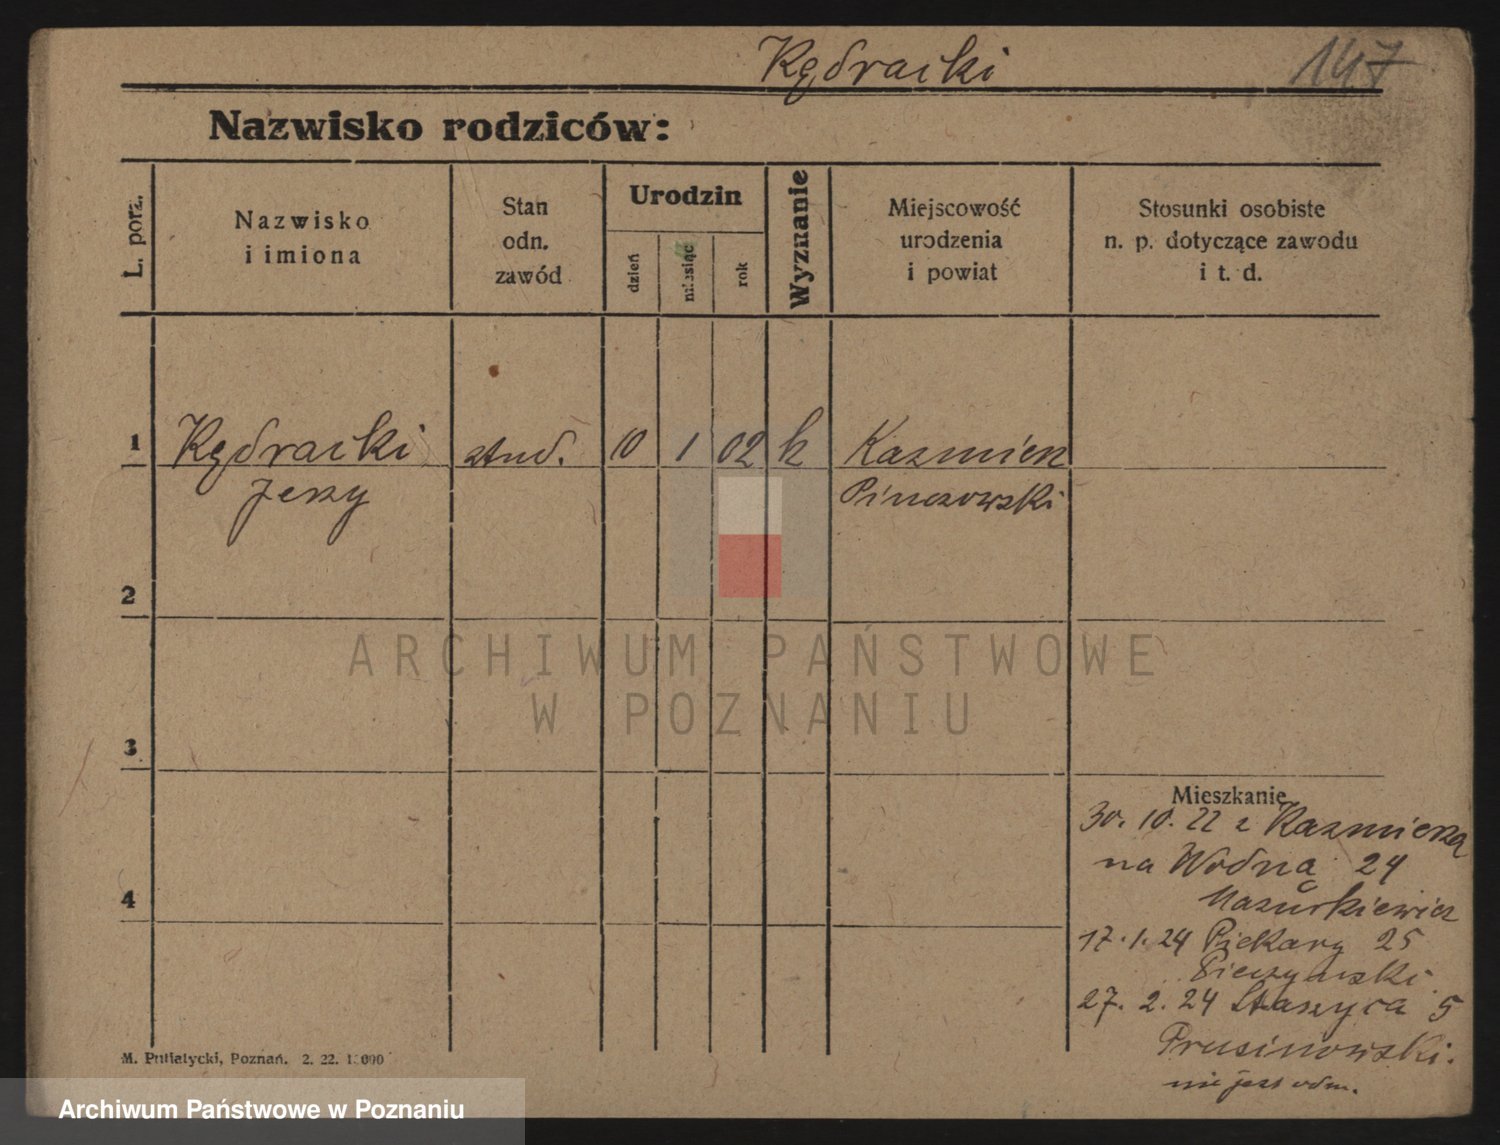 Kędracki 147
Nazwisko rodziców:
L. porz.
Nazwisko
i imiona
Stan
odn.
zawód
Urodzin
dzień
miesiąc
rok
Wyznanie
Miejscowość
urodzenia
i powiat
Stosunki osobiste
n. p. dotyczące zawodu
i t. d.
1 Kędracki stud. 10 1 02 k Kazmierz
Jerzy Pinczowski
2
ARCHIWUM PAŃSTWOWE
W POZNANIU
3
Mieszkanie
30. 10. 22 z Kazmierza
na Wodną 24
4
Mazurkiewicz
17. 1. 24 Piekary 25
27. 2. 24 Staszyca 5
Prusinowski.
nie jest odm.
M. Putiatycki, Poznań. 2. 22.
Archiwum Państwowe w Poznaniu